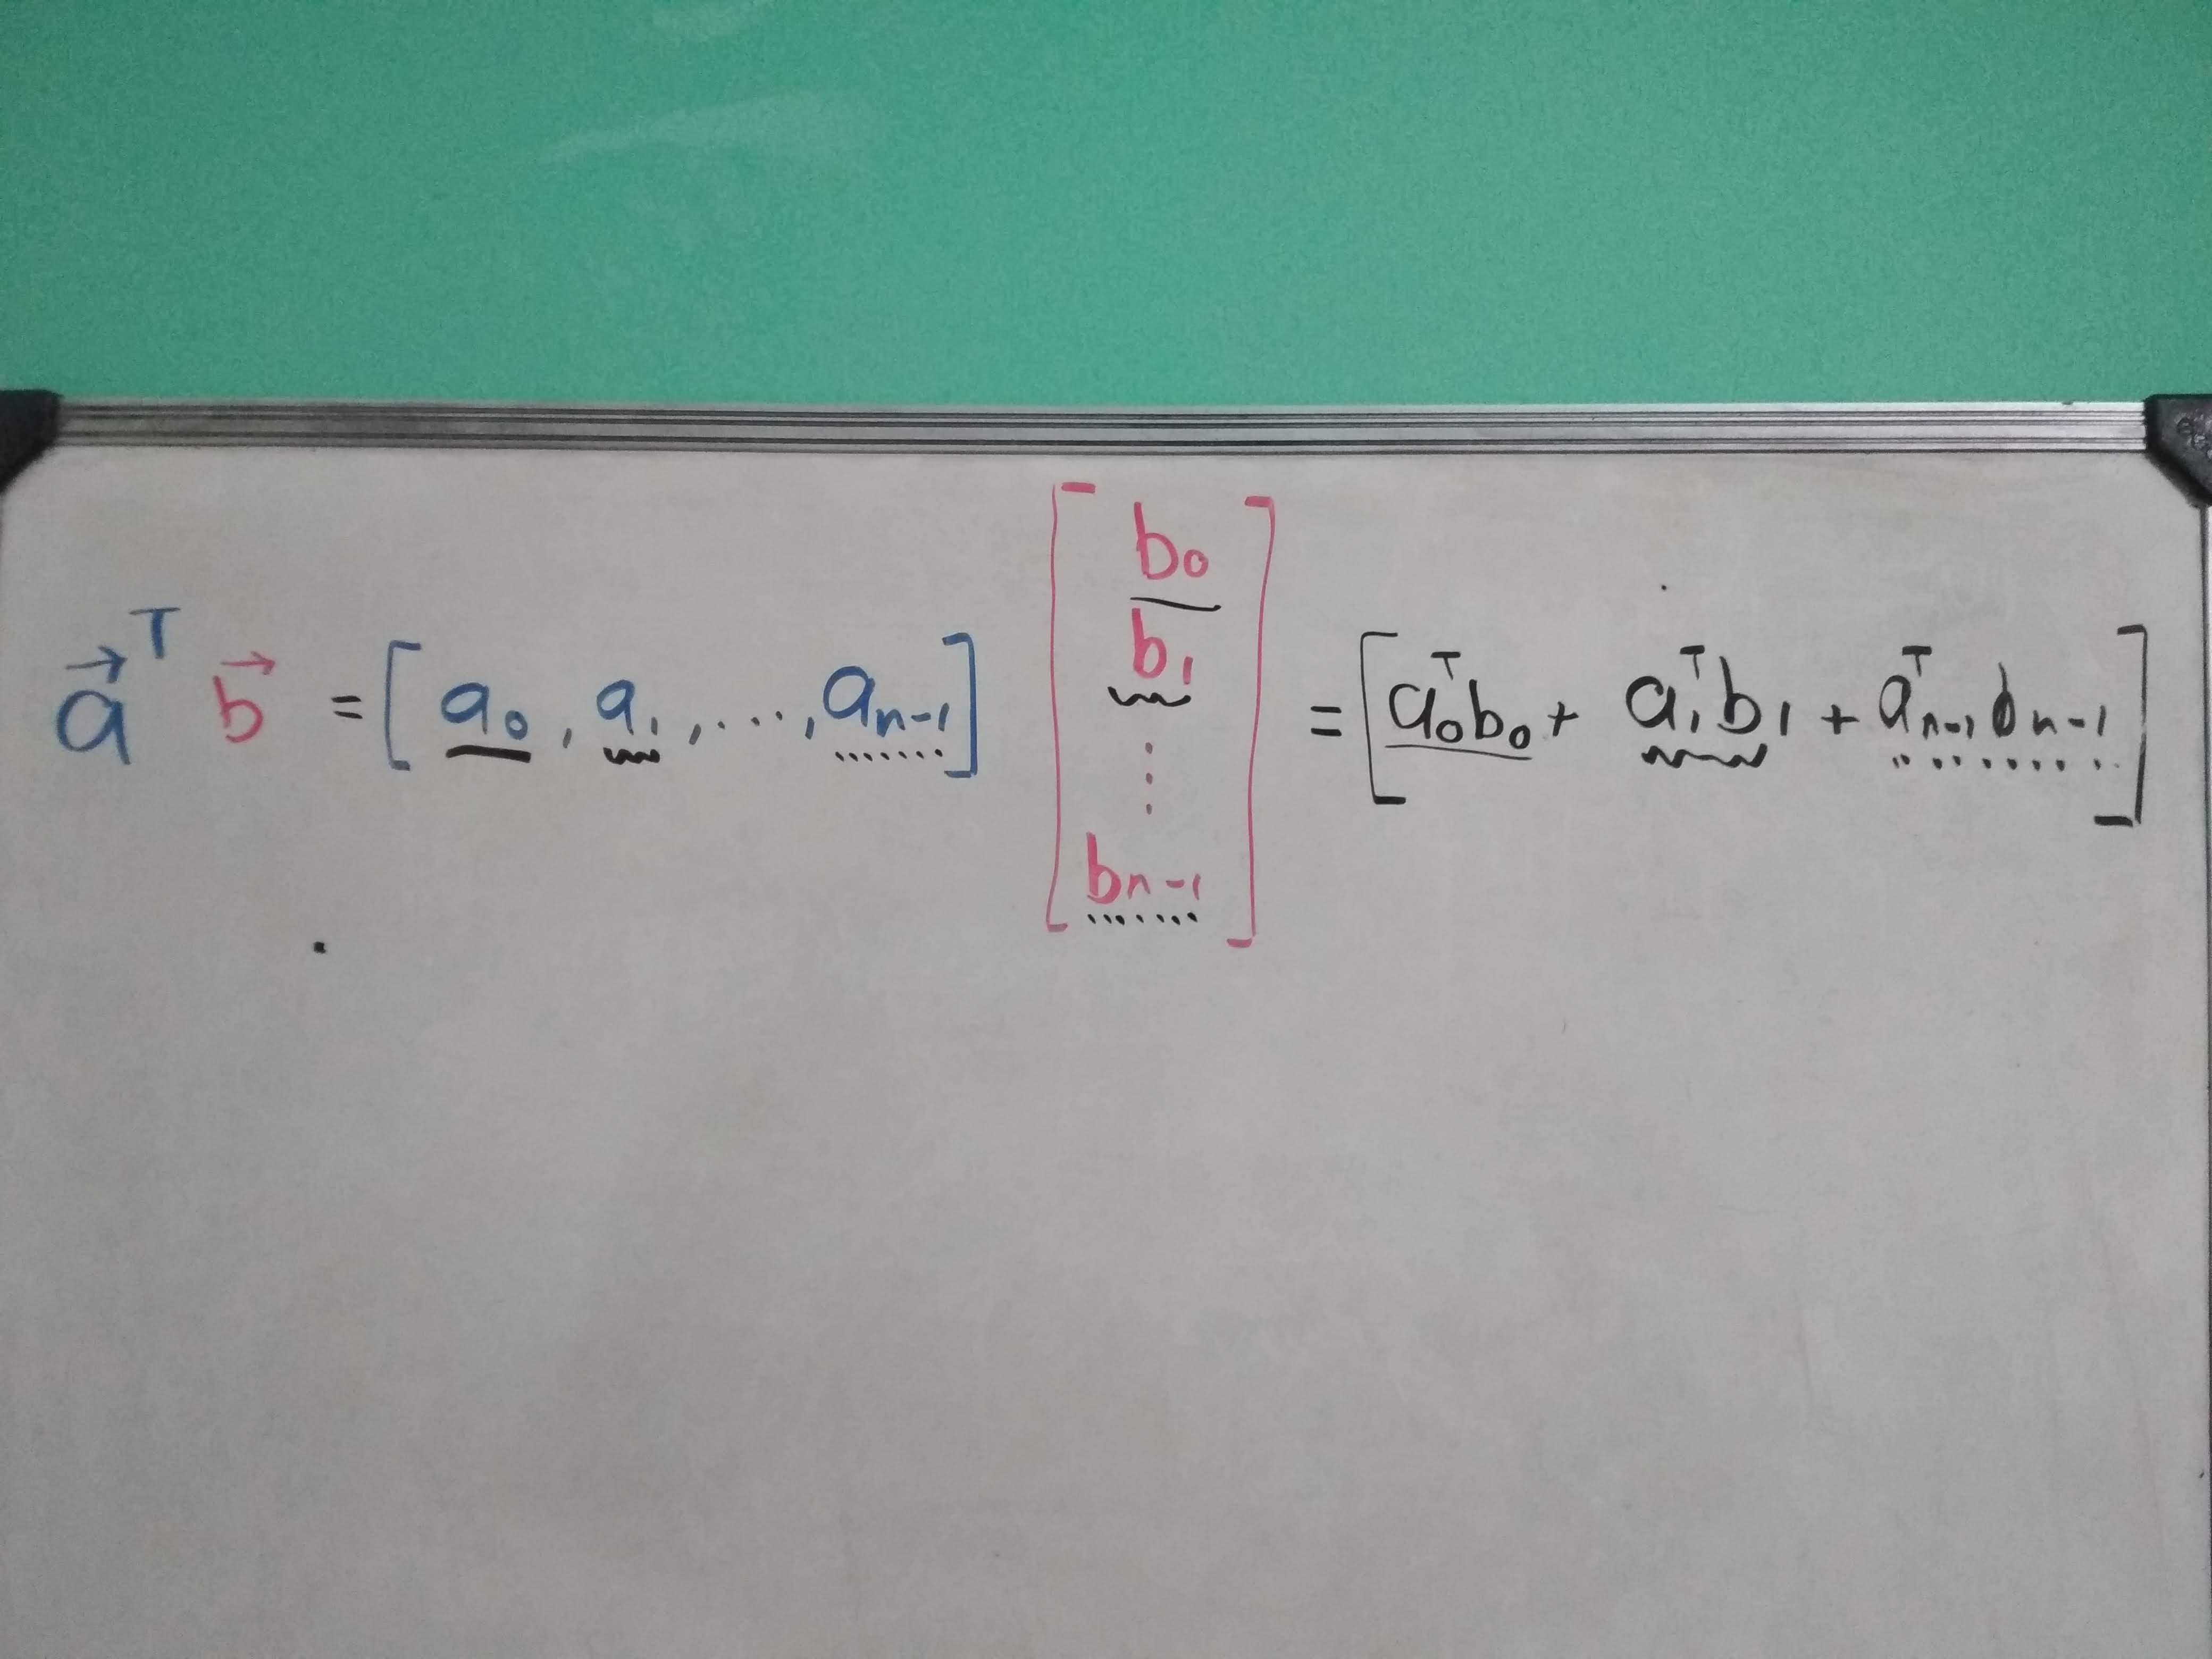 $\vec{a}^T \vec{b} = [a_0, a_1, \ldots, a_{n-1}] \begin{bmatrix} b_0 \\ b_1 \\ \vdots \\ b_{n-1} \end{bmatrix} = [a_0^T b_0 + a_1^T b_1 + a_{n-1}^T b_{n-1}]$